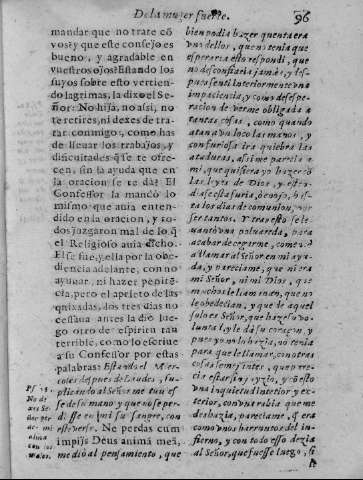 De la muger fuerte.
96
mandar que no trate cō
vos? y que este consejo es
bueno, y agradable en
vuestros ojos? Estando los
suyos sobre esto vertien-
do lagrimas, la dixo el Se-
ñor: No hija, no assi, no
te retires, ni dexes de tra-
tar conmigo, como has
de lleuar los trabajos, y
dificultades q̃ se te ofre-
cen, sin la ayuda que en
la oracion se te dà? El
Confessor la mandò lo
mismo que auia enten-
dido en la oracion, y to-
dos juzgaron mal de lo q̃
el Religioso auia dicho.
El se fue, y ella por la obe-
diencia adelante, con no
ayunar, ni hazer penitē-
cia, pero el aprieto de las
quixadas, dos tres dias no
cessaua antes la dio lue-
go otro de espiritu tan
terrible, como lo escriue
a su Confessor por estas
palabras: Estando el Mier-
coles despues de Laudes, su-
plicando al Señor me tuuies-
se de su mano y que no se per-
diesse en mi su sangre, con
este verso. Ne perdas cum
impijs Deus animã meã,
me diò al pensamiento, que
Ps 25.
No de
Señor per
mi
alma
con los
malos.
bien podia hazer quenta era
uno dellos, que no tenia que
esperar a esto respondi, que
no desconfiaria jamàs, y des-
puès senti interiormente vna
impaciencia, y como desespe-
racion de verme obligada a
tantas cosas, como quando
atan a vn loco las manos, y
con furiosa ira quiebra las
ataduras, assi me parecia a
mi que quisiera yo hazer cō
las leyes de Dios, y esto
los dias de comunion, por
ser tantos. Y tras esto se le-
uantò vna poluareda, para
acabar de cegarme, como
a llamar al Señor en mi ayu-
da, y pareciame, que ni era
mi Señor, ni mi Dios, que
muchos le llamauan, que no
le obedecian, y que de aquel
solo es Señor, que haze su vo-
luntad, y le dà su coraçon, y
pues yo no lo hazia, no tenia
para que le llamar, con otras
cosas semejantes, que pare-
cia estar sin juyzio, y cō esto
vna inquietud interior y ex-
terior, con vna rabia que me
deshazia, pareciame, q̃ era
como vnos barruntos del in-
fierno, y con todo esso dezia
al Señor, que fuesse luego, si